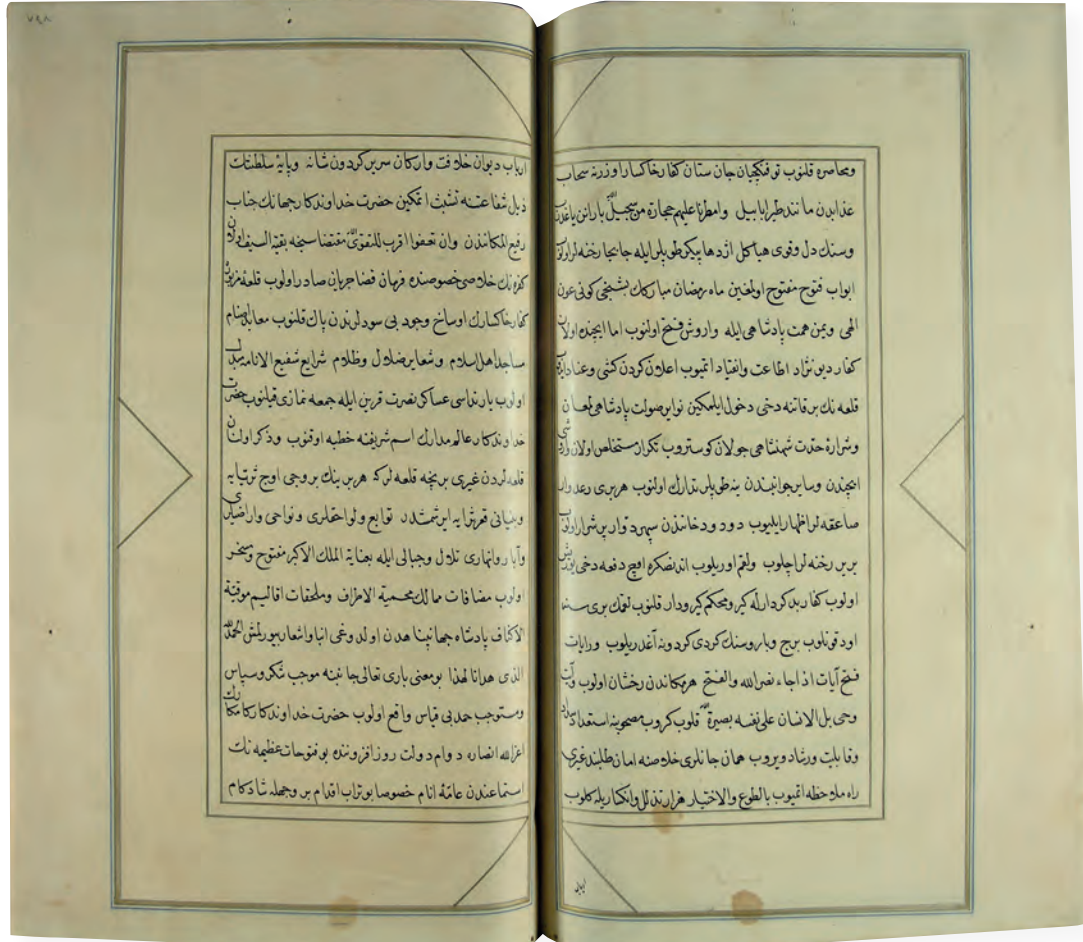 ومحاصره قلنوب توفنکچیان جان ستان کفار خاکسار اوزرنه سحاب
عذابدن مانند طیرا بابیل وامطرنا علیهم حجارة من سجیل بارانن یاغدروب
وسنك دل وقوی هیاکل اژدها پیکر طوپلر ایله جابجا رخنه لر
ابواب فتوح مفتوح اولمغین ماه رمضان مبارکك بشنجی کونی عون
الهی ویمن همت پادشاهی ایله واروش فتح اولنوب اما ایچنده اولان
کفار دیو نژاد اطاعت وانقیاد اتمیوب اعلان کردن کشی وعناد
قلعه نك بر قاتنه دخی دخول ایلمکین نوایر صولت پادشاهی لمعان
وشراره حدت شهنشاهی جولان کوستروب تکرار مستخلص اولان
ایچندن وسایر جوانبندن ینه طوپلر تدارك اولنوب هر بری رعد وار
صاعقه لر اظهار ایلیوب دود ودخاندن سپهر دوار پر شرار اولوب
بربر رخنه لر اچلوب ولغم اوریلوب اندنصکره اوچ دفعه دخی یوریش
اولوب کفار بد کردار له کیر ومحکم کیر ودار قلنوب لغمك بری
اود قونلوب برج وباروسنك کردی کردونه آغدریلوب ورایات
فتح آیات اذا جاء نصرالله والفتح هر مکاندن رخشان اولوب
وحی بل الانسان علی نفسه بصیرة قلوب کروب مصحوبنه استعداد
وقابلیت ورشاد ویروب همان جانلری خلاصنه امان طلبندن غیری
راه ملاحظه اتمیوب بالطوع والاختیار هزار تذلل وانکسار یله کلوب
ارباب دیوان خلافت وارکان سریر کردون شانه وپایه سلطنتك
ذیل شفاعتنه تشبث اتمکین حضرت خداوندکار جهانك جناب
رفیع المکانندن وان تعفوا اقرب للتقوی مقتضاسنجه بقیة السیف اولان
کفره نك خلاصی خصوصنده فرمان قضا جریان صادر اولوب قلعه مزبوره
کفار خاکسارك اوساخ وجود بی سودلرندن پاك قلنوب معابد اصنام
مساجد اهل اسلام وشعایر ضلال وظلام شرایع شفیع الانامه مبدل
اولوب یارنداسی عساکر نصرت قرین ایله جمعه نمازی قیلنوب حضرت
خداوندکار عالمدارك اسم شریفنه خطبه اوقنوب وذکر اولنان
قلعه لردن غیری بر نیچه قلعه لر که هر برینك بروجی اوج ثریایه
وبنیانی قعر ثرایه ایرشمشدر توابع ولواحقلری ونواحی واراضیلری
وآبار وانهاری تلال وجبالی ایله بعنایة الملك الاکبر مفتوح ومسخر
اولوب مضافات ممالك محمیة الاطراف وملحقات اقالیم موقیة
الاکناف پادشاه جهانپناهدن اولدوغی انبا واشعار بیورلمش الحمدلله
الذی هدانا لهذا بو معنی باری تعالی جانبنه موجب شکر وسپاس
ومستوجب حمد بی قیاس واقع اولوب حضرت خداوندکار کامکارك
اعز الله انصاره دوام دولت روز افزوننده بو فتوحات عظیمه نك
استماعندن عامه انام خصوصا بو تراب اقدام بر وجهله شادکام